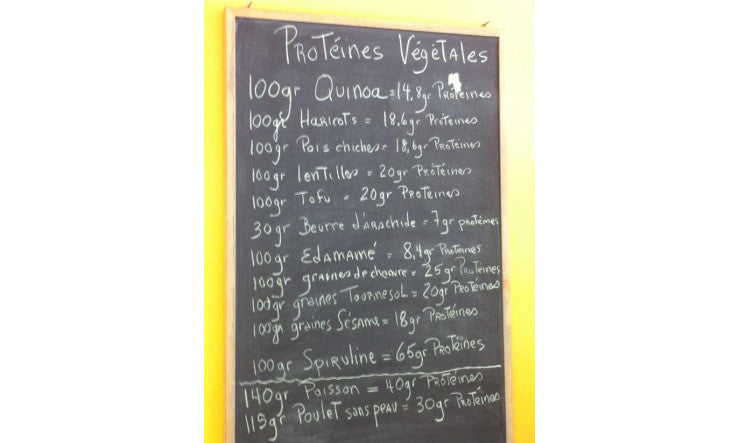 Protéines Végétales
100gr Quinoa = 14,8gr Protéines
100gr Haricots = 18,6gr Protéines
100gr Pois chiches = 18,6gr Protéines
100gr lentilles = 20gr Protéines
100gr Tofu = 20gr Protéines
30gr Beurre d'arachide = 7gr protéines
100gr Edamamé = 8,4gr Protéines
100gr graines de chanvre = 25gr Protéines
100gr graines Tournesol = 20gr Protéines
100gr graines Sésame = 18gr Protéines
100gr Spiruline = 65gr Protéines
140gr Poisson = 40gr Protéines
115gr Poulet sans peau = 30gr Protéines